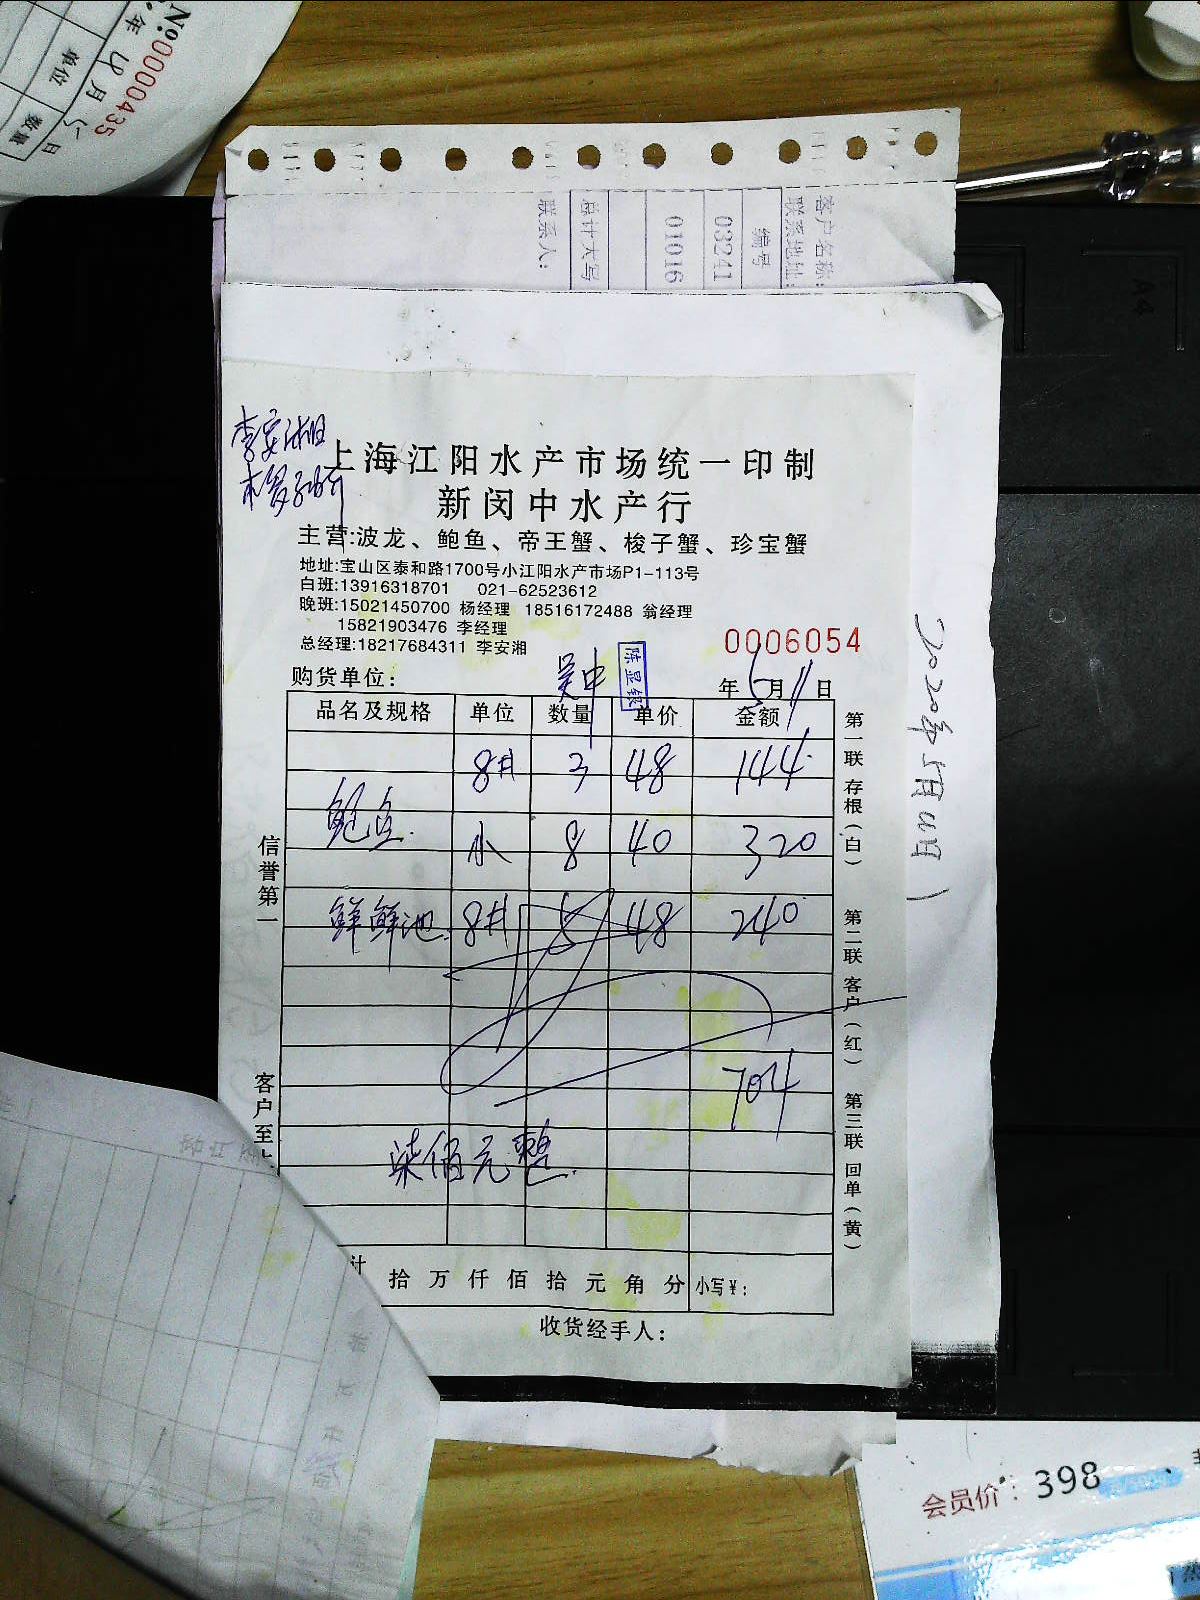 No.00000435
年 4 月 5 日
单位 数量
客户名称:
联系地址:
编号
03241
01016
总计大写
联系人:
李安湘
上海江阳水产市场统一印制
新闵中水产行
主营:波龙、鲍鱼、帝王蟹、梭子蟹、珍宝蟹
地址:宝山区泰和路1700号小江阳水产市场P1-113号
白班:13916318701 021-62523612
晚班:15021450700 杨经理 18516172488 翁经理
15821903476 李经理
总经理:18217684311 李安湘
0006054
陈显银
购货单位: 吴中 年 5 月 11 日
品名及规格 单位 数量 单价 金额
8# 3 48 144
鲍鱼 小 8 40 320
鲜鲜池 8# 5 48 240
704
柒佰元整
计 拾 万 仟 佰 拾 元 角 分 小写¥:
收货经手人:
信誉第一
客户至上
第一联 存根(白) 第二联 客户(红) 第三联 回单(黄)
A4
会员价: 398